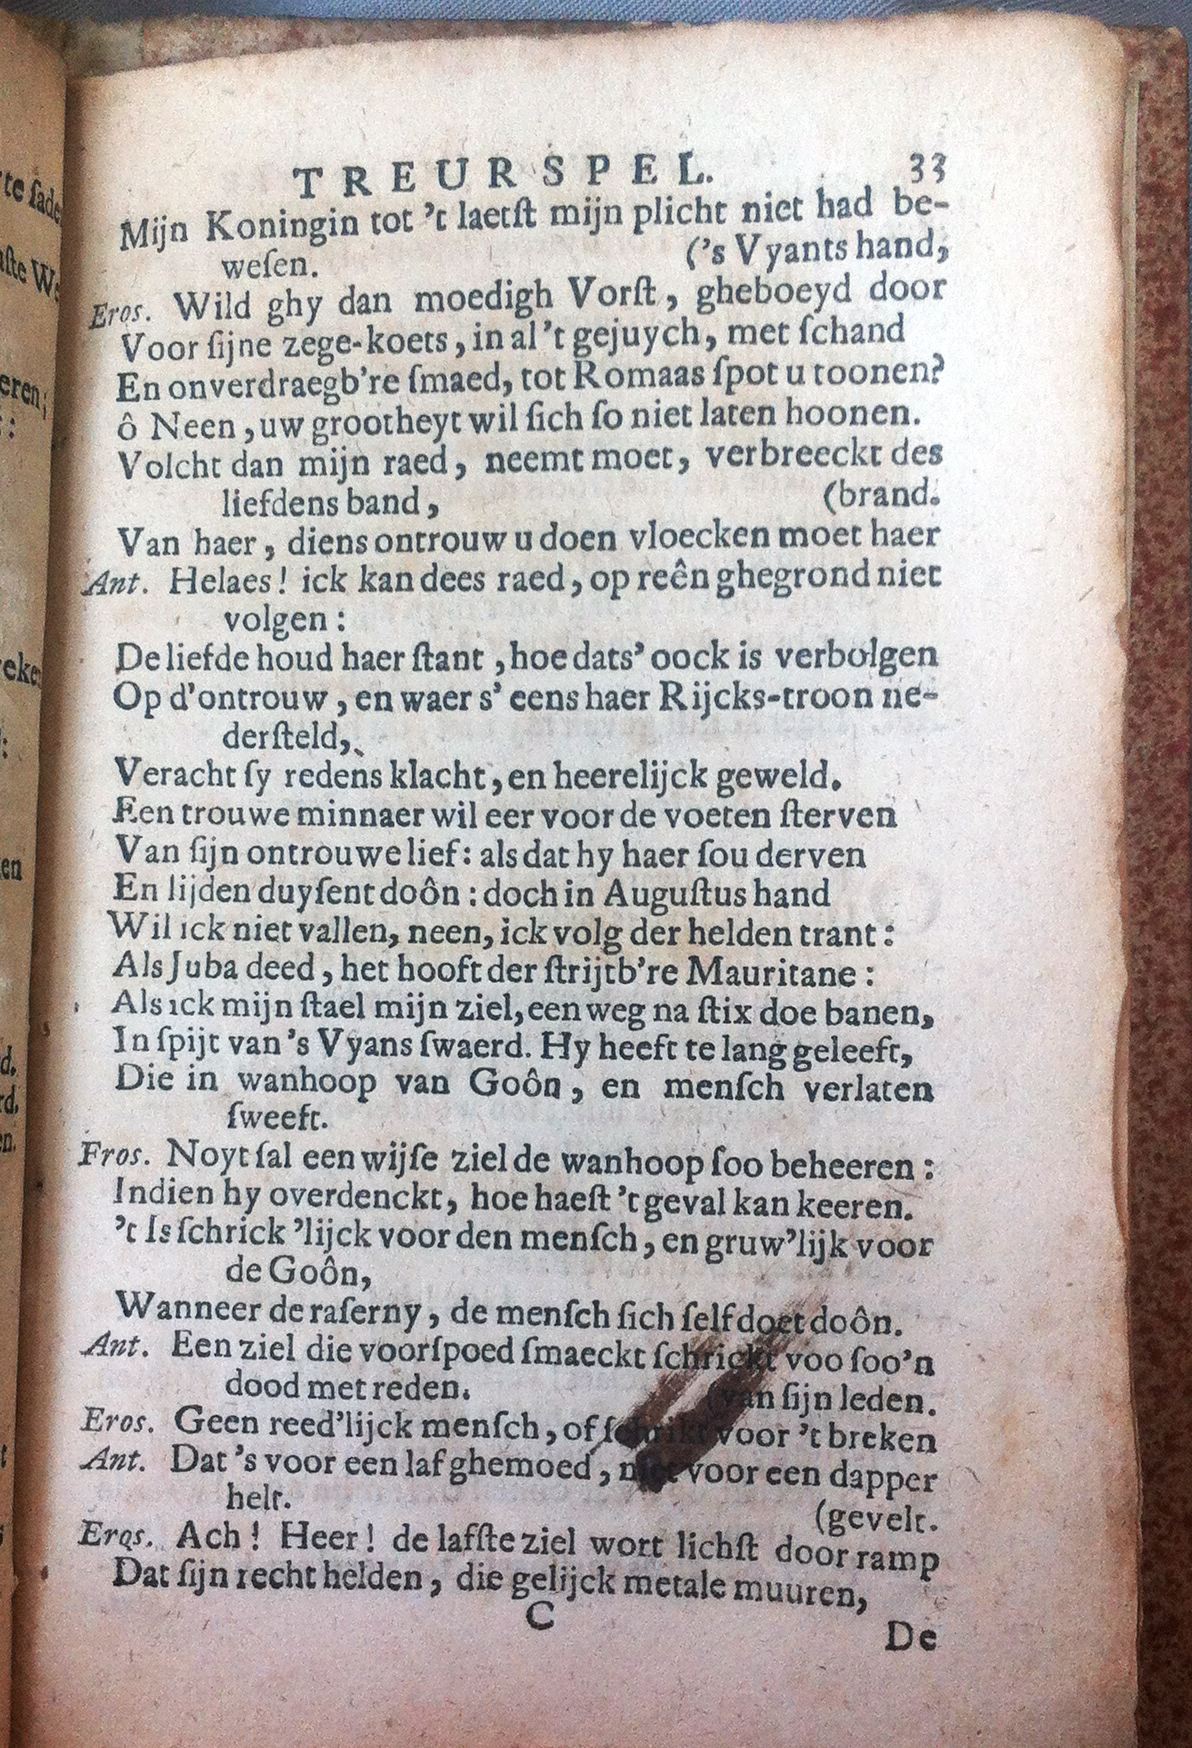 TREURSPEL. 33
Mijn Koningin tot 't laetſt mijn plicht niet had be-
weſen. ('s Vyants hand,
Eros. Wild ghy dan moedigh Vorſt, gheboeyd door
Voor ſijne zege-koets, in al 't gejuych, met ſchand
En onverdraegb're ſmaed, tot Romaas ſpot u toonen?
ô Neen, uw grootheyt wil ſich ſo niet laten hoonen.
Volcht dan mijn raed, neemt moet, verbreeckt des
liefdens band, (brand.
Van haer, diens ontrouw u doen vloecken moet haer
Ant. Helaes! ick kan dees raed, op reên ghegrond niet
volgen:
De liefde houd haer ſtant, hoe dats' oock is verbolgen
Op d'ontrouw, en waer s' eens haer Rijcks-troon ne-
derſteld,
Veracht ſy redens klacht, en heerelijck geweld.
Een trouwe minnaer wil eer voor de voeten ſterven
Van ſijn ontrouwe lief: als dat hy haer ſou derven
En lijden duyſent doôn: doch in Auguſtus hand
Wil ick niet vallen, neen, ick volg der helden trant:
Als Juba deed, het hooft der ſtrijtb're Mauritane:
Als ick mijn ſtael mijn ziel, een weg na ſtix doe banen,
In ſpijt van 's Vyans ſwaerd. Hy heeft te lang geleeft,
Die in wanhoop van Goôn, en menſch verlaten
ſweeft.
Eros. Noyt ſal een wijſe ziel de wanhoop ſoo beheeren:
Indien hy overdenckt, hoe haeſt 't geval kan keeren.
't Is ſchrick'lijck voor den menſch, en gruw'lijk voor
de Goôn,
Wanneer de raſerny, de menſch ſich ſelf doet doôn.
Ant. Een ziel die voorſpoed ſmaeckt ſchrickt voo ſoo'n
dood met reden. (van ſijn leden.
Eros. Geen reed'lijck menſch, of ſchrikt voor 't breken
Ant. Dat 's voor een laf ghemoed, niet voor een dapper
helt. (gevelt.
Eros. Ach! Heer! de lafſte ziel wort lichſt door ramp
Dat ſijn recht helden, die gelijck metale muuren,
C
De